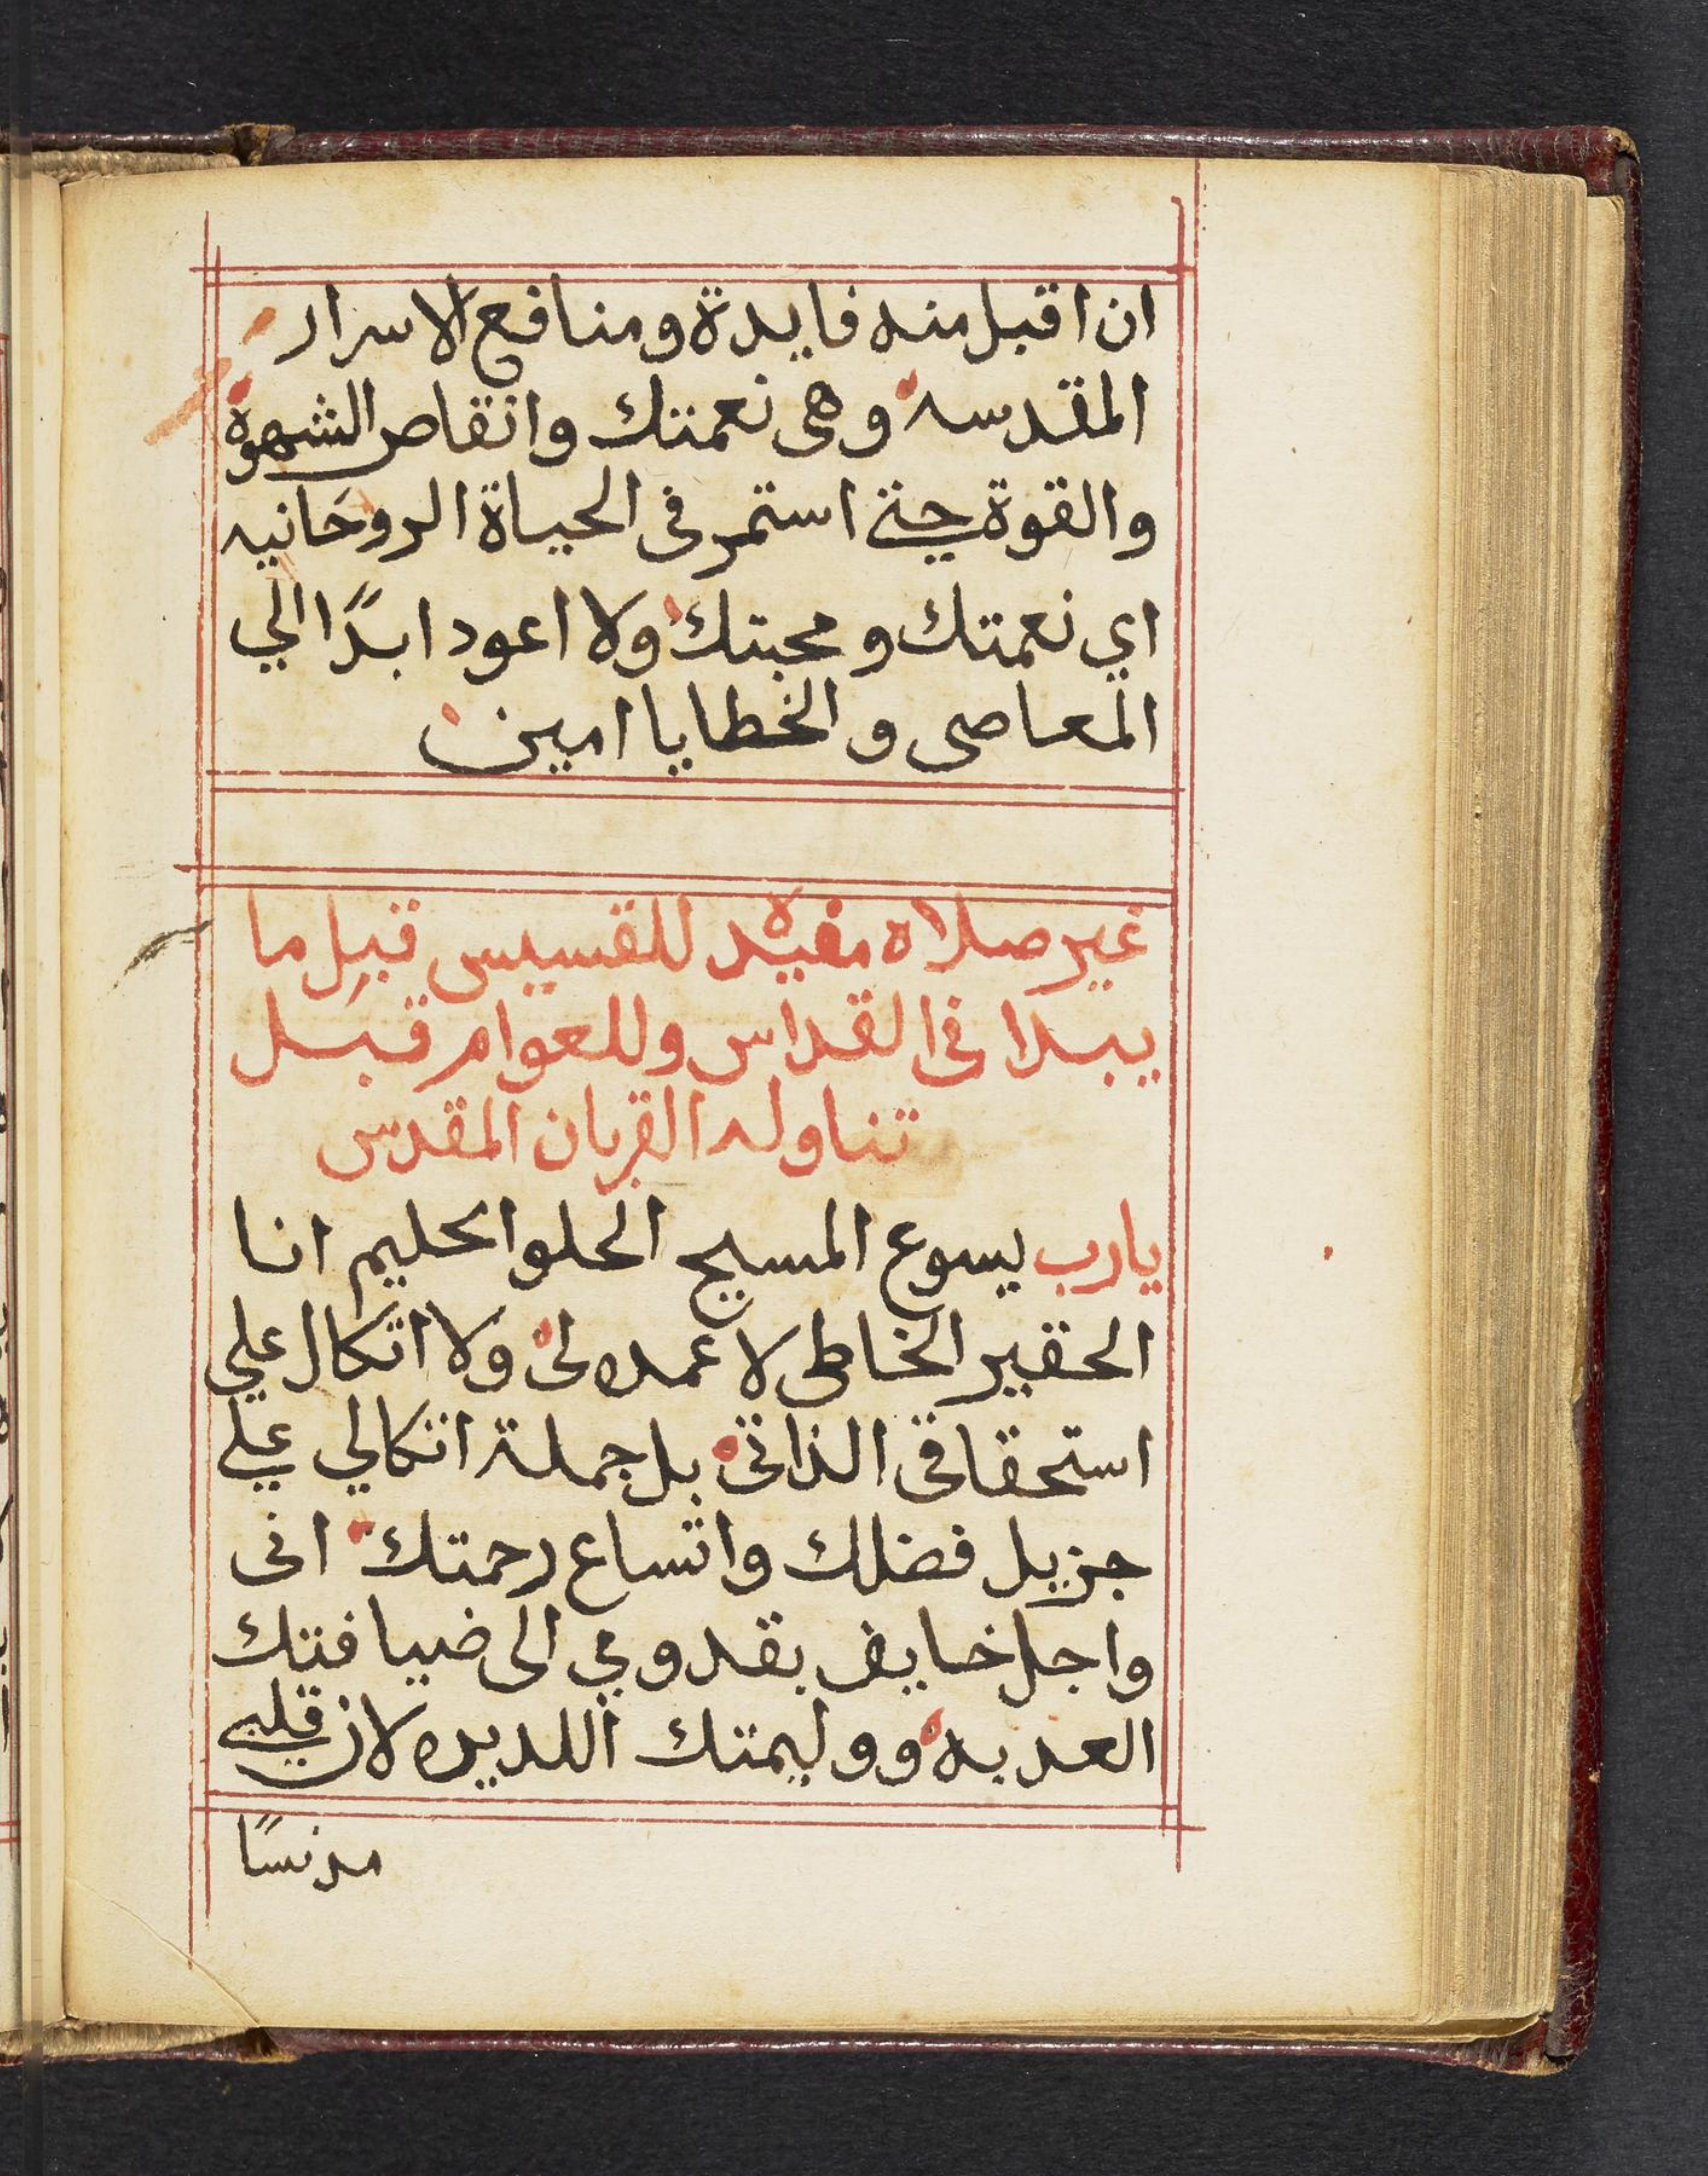 ان اقبل منه فايدة ومنافع الاسرار
المقدسه وهى نعمتك وانقاص الشهوة
والقوة حتي استمر فى الحياة الروحانيه
اي نعمتك ومحبتك ولا اعود ابدًا الي
المعاصى والخطايا امين
غير صلاة مفيدة للقسيس قبل ما
يبدا فى القداس وللعوام قبل
تناوله القربان المقدس
يارب يسوع المسيح الحلو الحليم انا
الحقير الخاطى لا عمده لى ولا اتكال علي
استحقاقى الذاتى بل جملة اتكالي علي
جزيل فضلك واتساع رحمتك انى
واجل خايف بقدومي الى ضيافتك
العدبه ووليمتك اللديده لان قلبي
مدنسًا